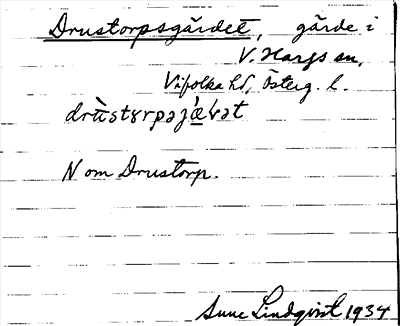 Drustorpsgärdet, gärde i
V. Hargs sn,
Vifolka hd, Österg. l.
drùstɤrpəjæ̀ɽət
N om Drustorp.
Sune Lindqvist 1934